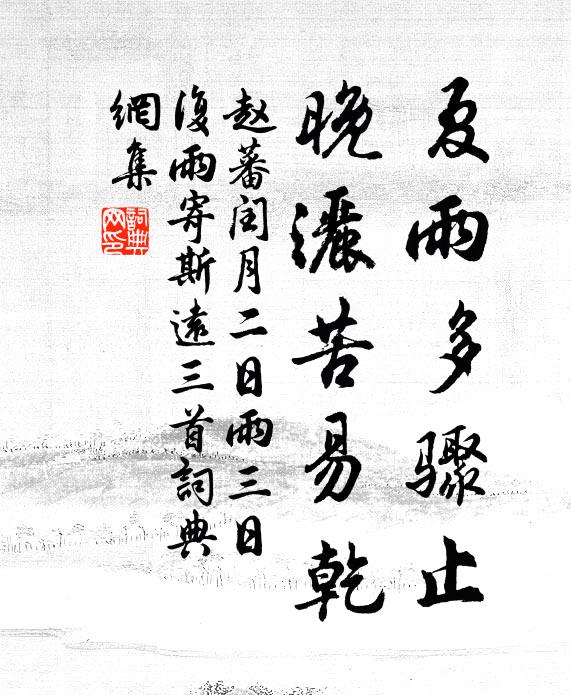 夏雨多驟止
晚灑苦易乾
赵蕃闰月二日雨三日
復雨寄斯遠三首詞典
網集
詞典
网印